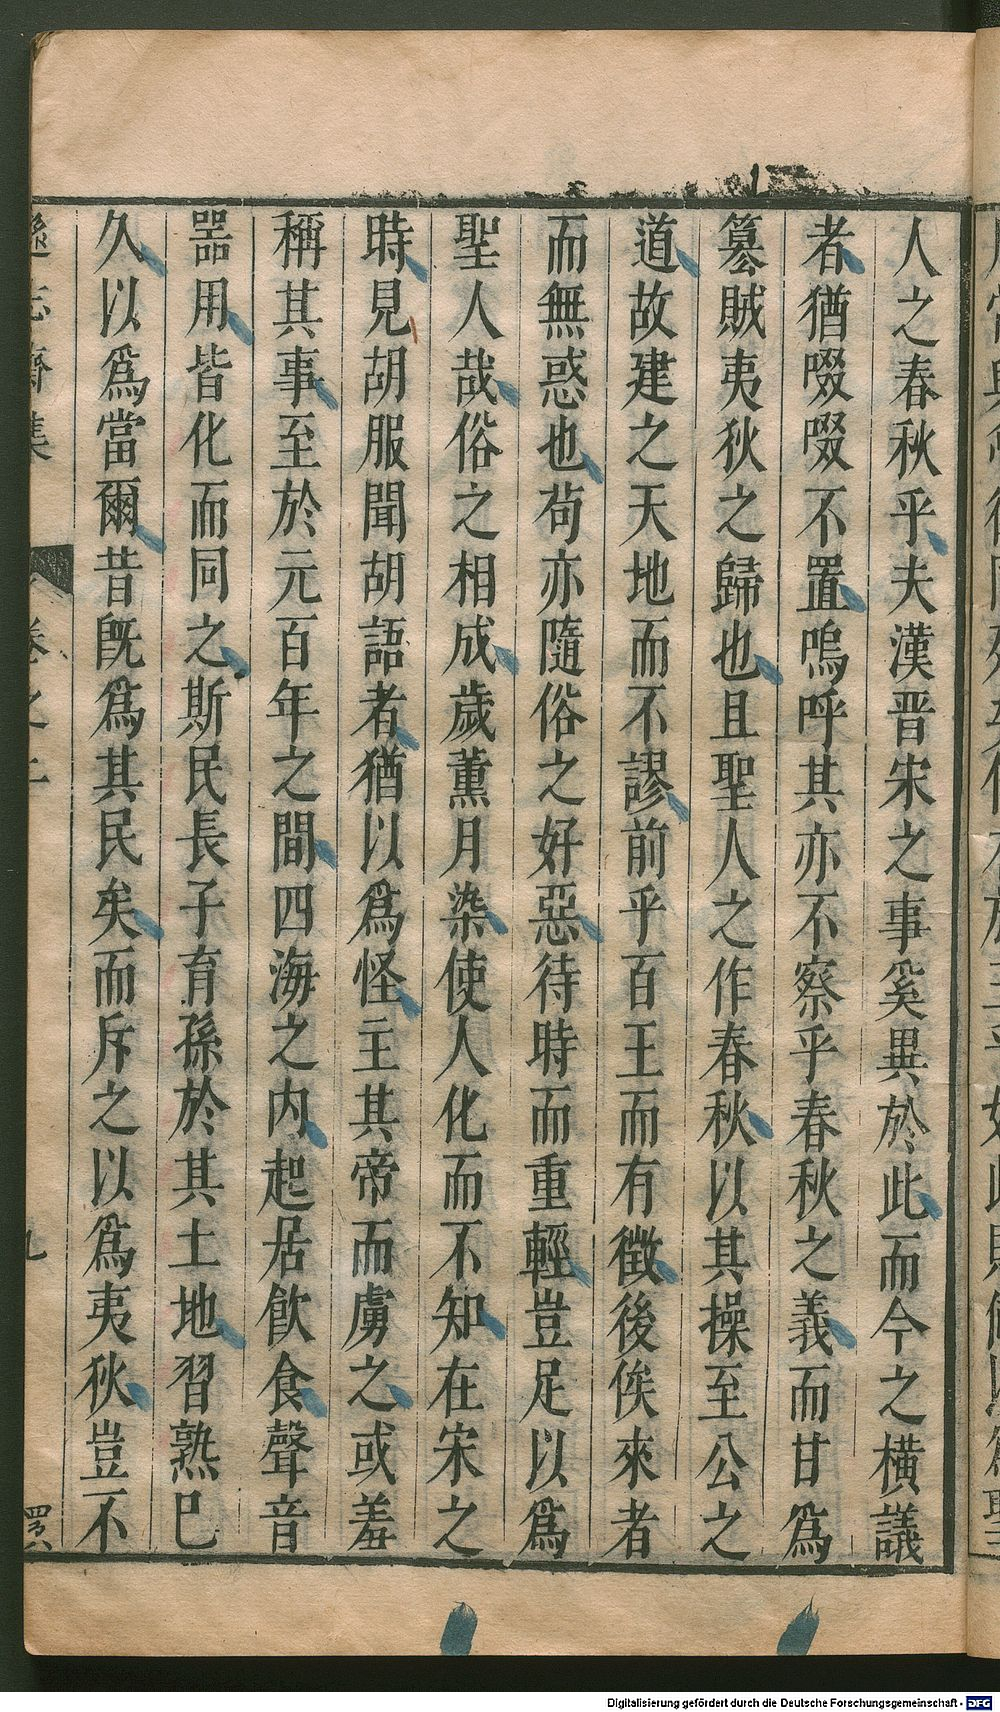 人之春秋乎夫漢晋宋之事奚異於此而今之橫議
者猶啜啜不置嗚呼其亦不察乎春秋之義而甘爲
簒賊夷狄之歸也且聖人之作春秋以其操至公之
道故建之天地而不謬前乎百王而有徵後俟來者
而無惑也茍亦隨俗之好惡待時而重輕豈足以爲
聖人哉俗之相成歲薰月染使人化而不知在宋之
時見胡服聞胡語者猶以爲怪主其帝而虜之或羞
稱其事至於元百年之間四海之内起居飲食聲音
器用皆化而同之斯民長子育孫於其土地習熟已
久以爲當爾昔旣爲其民矣而斥之以爲夷狄豈不
遜志齋集 卷之二 九
Digitalisierung gefördert durch die Deutsche Forschungsgemeinschaft - DFG